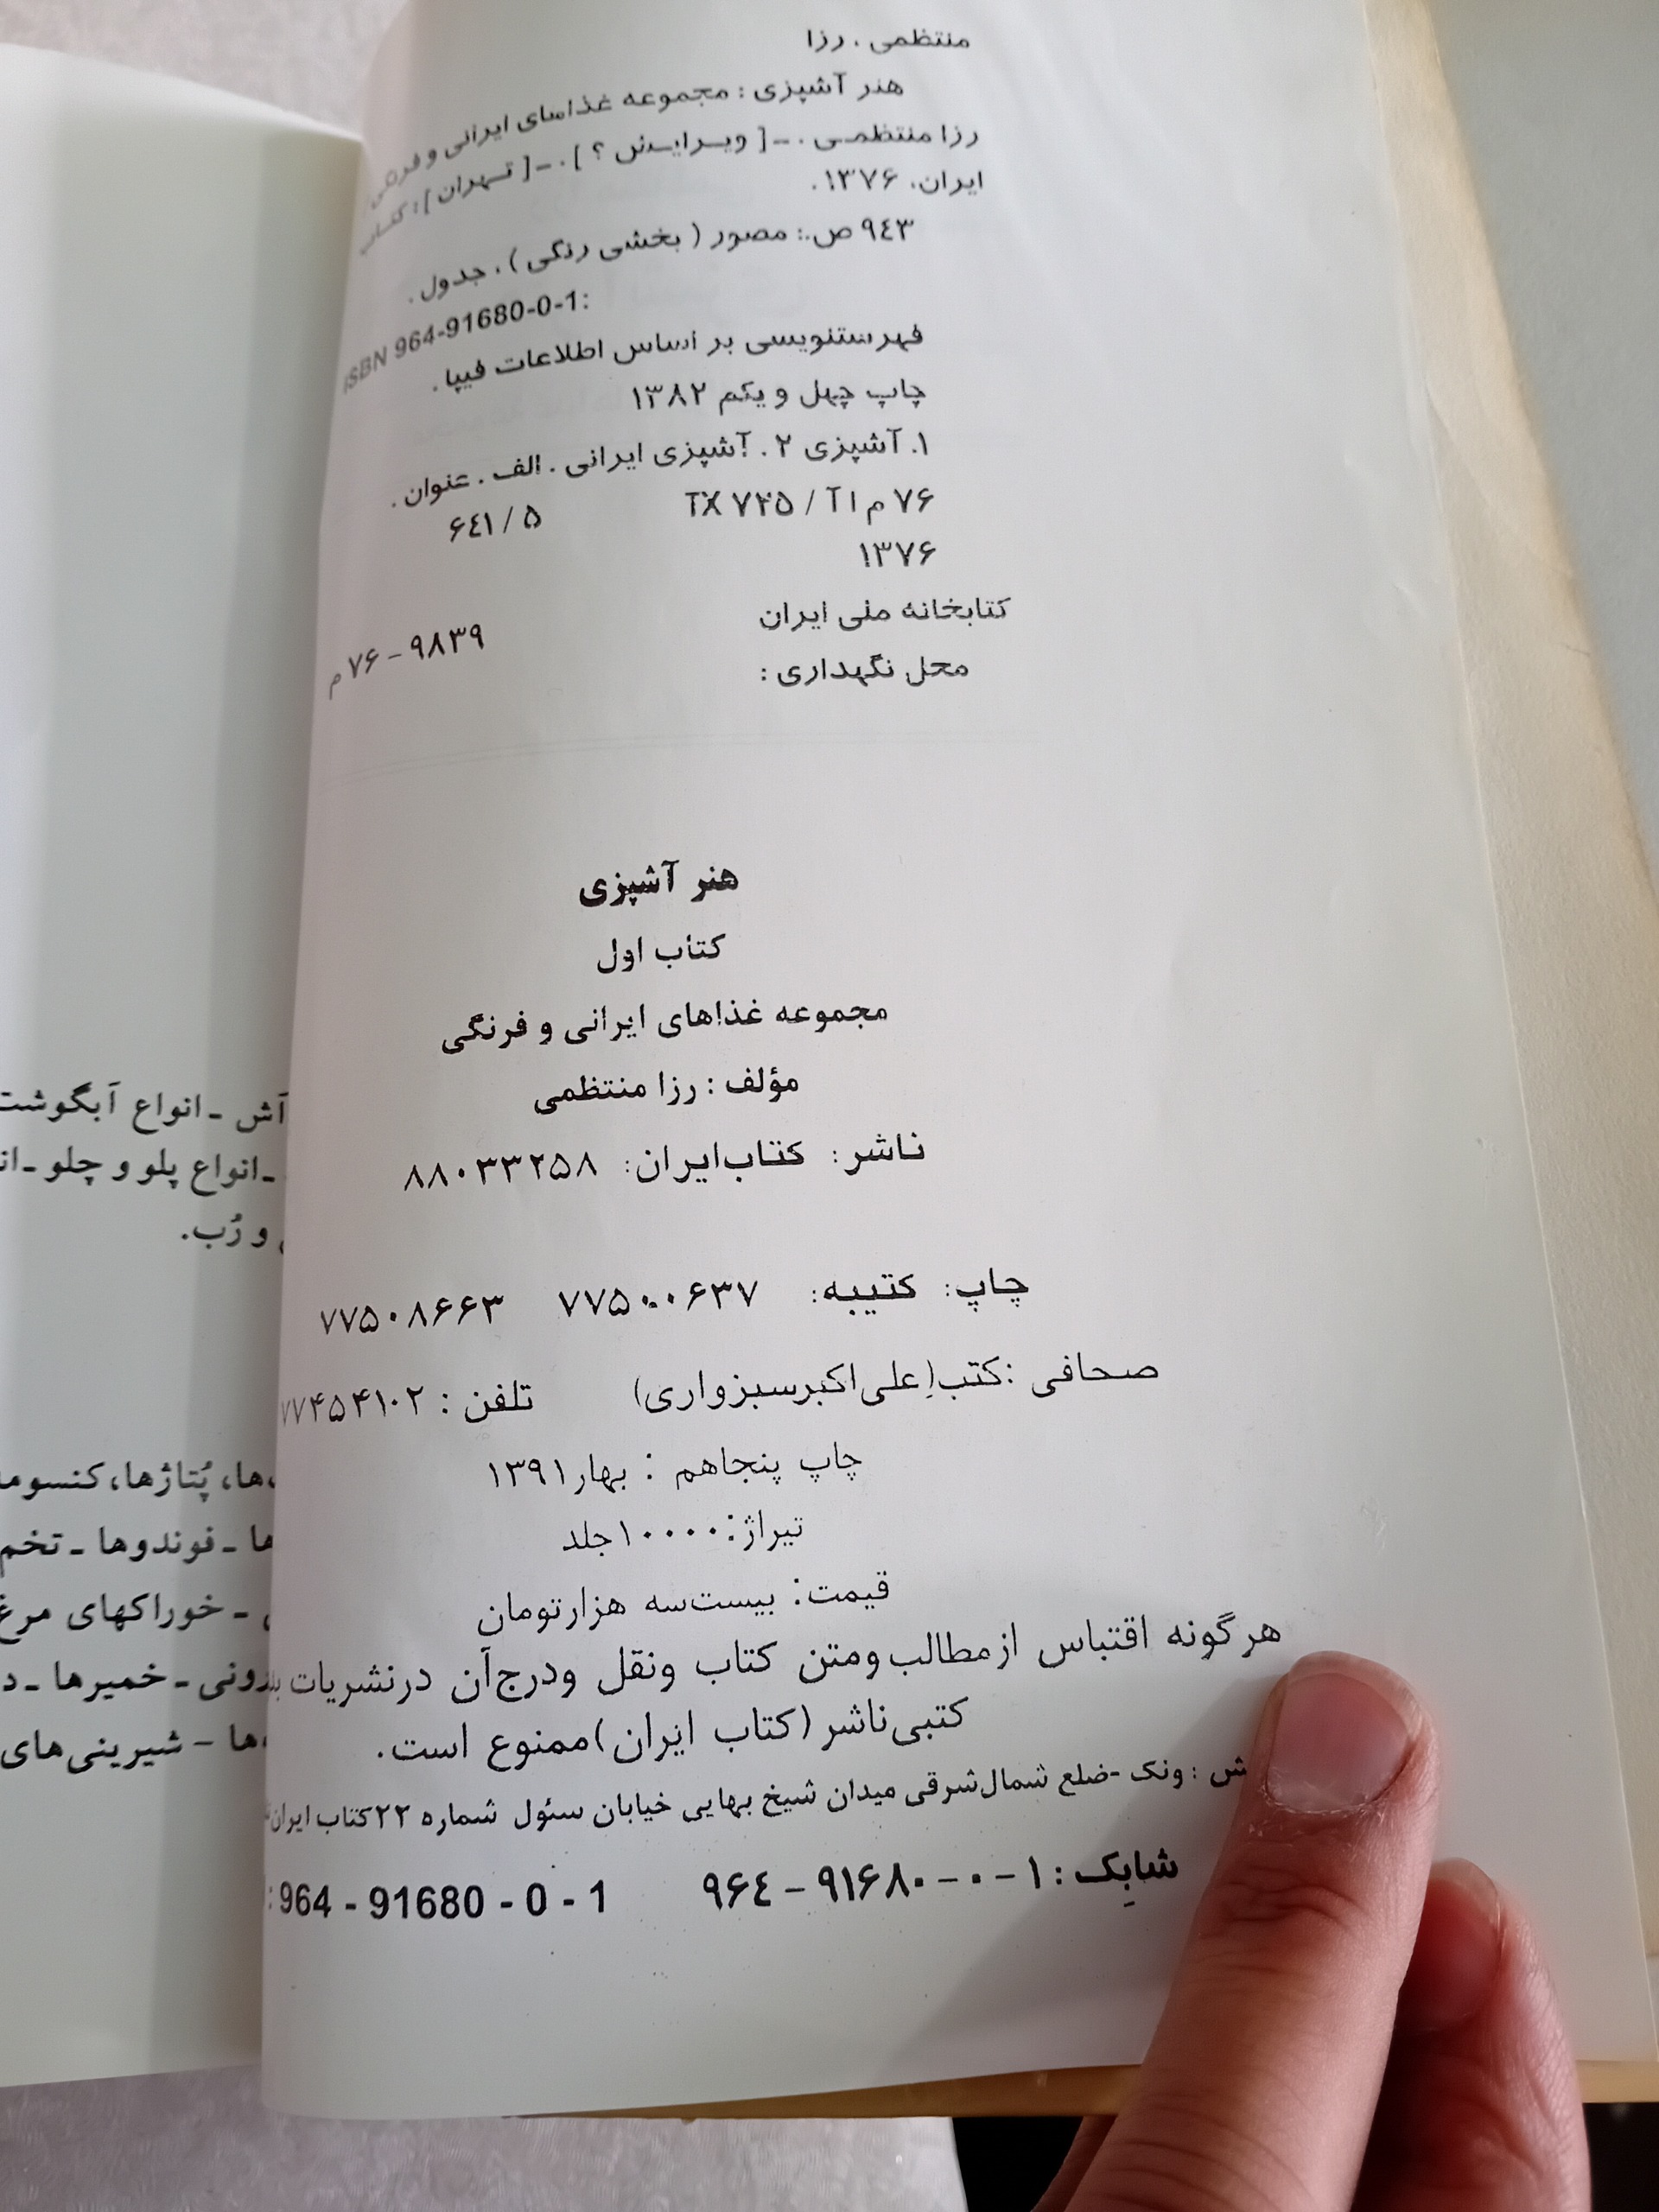 منتظمی، رزا
هنر آشپزی : مجموعه غذاهای ایرانی و فرنگی/
رزا منتظمـی . ـ [ ویـرایـش ؟ ] . ـ [ تـهران ] : کتـاب
ایران، ۱۳۷۶.
۹۴۳ ص.: مصور ( بخشی رنگی ) ، جدول .
ISBN 964-91680-0-1:
فهرستنویسی بر اساس اطلاعات فیپا .
چاپ چهل و یکم ۱۳۸۲
۱. آشپزی ۲ . آشپزی ایرانی . الف . عنوان .
۷۶ م ۱ آ / ۷۲۵ TX ۶۴۱ / ۵
۱۳۷۶
کتابخانه ملی ایران ۹۸۳۹ – ۷۶ م
محل نگهداری :
هنر آشپزی
کتاب اول
مجموعه غذاهای ایرانی و فرنگی
مؤلف : رزا منتظمی
ناشر : کتاب‌ایران: ۸۸۰۳۳۲۵۸
چاپ: کتیبه: ۷۷۵۰۰۶۳۷ ۷۷۵۰۸۶۶۳
صحافی :کتب(علی‌اکبرسبزواری) تلفن : ۷۷۴۵۴۱۰۲
چاپ پنجاهم : بهار۱۳۹۱
تیراژ:۱۰۰۰۰جلد
قیمت: بیست‌سه هزارتومان
هرگونه اقتباس ازمطالب‌ومتن کتاب ونقل ودرج‌آن درنشریات
کتبی‌ناشر(کتاب ایران)ممنوع است.
ش : ونک -ضلع شمال‌شرقی میدان شیخ بهایی خیابان سئول شماره ۲۲کتاب ایران
شابک : ۱ – ۰ – ۹۱۶۸۰ – ۹۶۴ 964 - 91680 - 0 - 1
آش ـ انواع آبگوشت
ـ انواع پلو و چلو ـ
و رُب.
ها، پُتاژها، کنسومه
ها ـ فوندوها ـ تخم
ـ خوراکهای مرغ
ـ خمیرها ـ
ها – شیرینی‌های